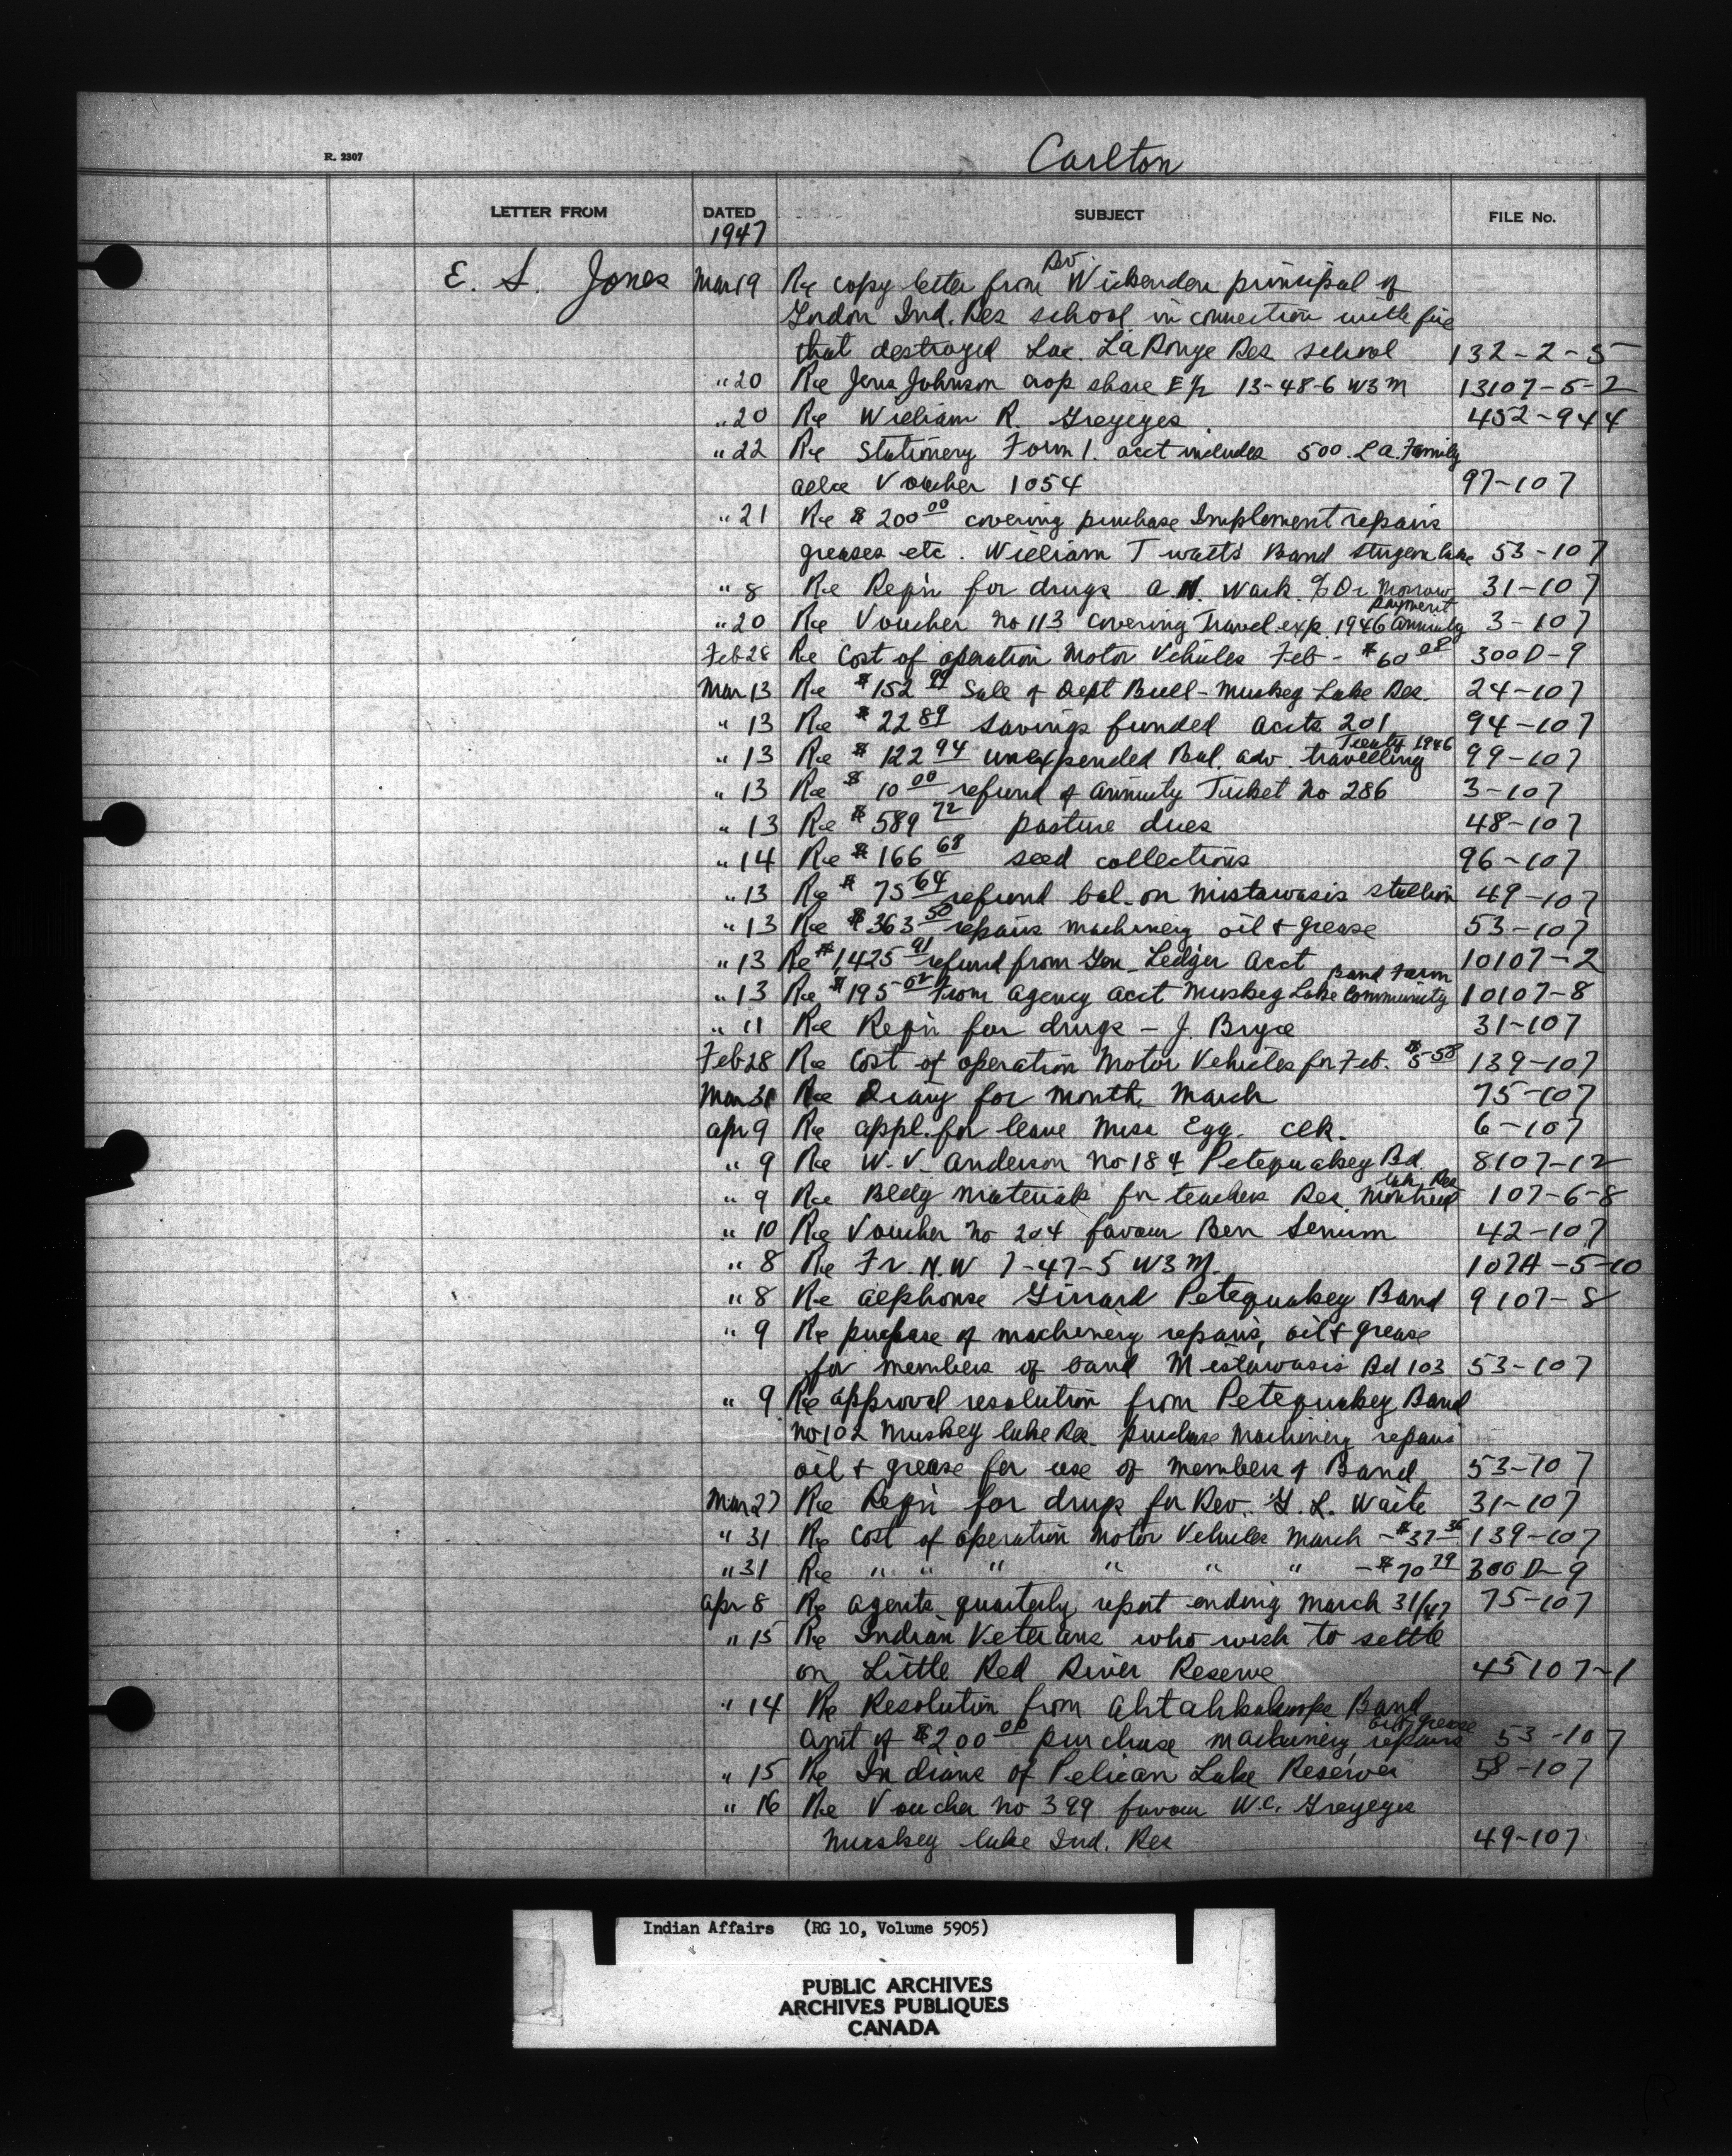 R. 2307
Carlton
LETTER FROM DATED SUBJECT FILE No.
1947
E. S. Jones Mar 19 Re copy letter from Rev. Wickenden principal of
Gordon Ind. Res school in connection with fire
that destroyed Lac LaRonge Res school 132-2-5
" 20 Re Jens Johnson crop share E½ 13-48-6 W3M 13107-5-2
" 20 Re William R. Greyeyes 452-944
" 22 Re Stationery Form 1. acct includes 500. Family
Voucher 1054 97-107
" 21 Re $200 00 covering purchase Implement repairs
greases etc. William Twatts Band Sturgeon Lake 53-107
" 8 Re Reqn for drugs A. N. Wark. c/o Dr Morrow 31-107
" 20 Re Voucher no 113 covering Travel exp. 1946 annuity payment 3-107
Feb 28 Re Cost of operation Motor Vehicles Feb - $60 08 300D-9
Mar 13 Re $152 99 Sale of Dept Bull - Muskeg Lake Res. 24-107
" 13 Re $22 89 savings funded accts 201 94-107
" 13 Re $122 94 unexpended Bal. adv. travelling Treaty 1946 99-107
" 13 Re $10 00 refund of annuity Ticket No 286 3-107
" 13 Re $589 72 pasture dues 48-107
" 14 Re $166 68 seed collections 96-107
" 13 Re $75 64 refund bal. on Mistawasis stallion 49-107
" 13 Re $363 50 repairs machinery oil & grease 53-107
" 13 Re $1,425 91 refund from Gen. Ledger Acct 10107-2
" 13 Re $195 02 from agency acct Muskeg Lake Community Band Farm 10107-8
" 11 Re Reqn for drugs - J. Bryce 31-107
Feb 28 Re Cost of operation Motor Vehicles for Feb. $5-58 139-107
Mar 31 Re Diary for month March 75-107
Apr 9 Re appl. for leave Miss Egg. Clk. 6-107
" 9 Re W. V. Anderson No 184 Petequakey Bd. 8107-12
" 9 Re Bldg materials for teachers Res. Montreal Lake Res 107-6-8
" 10 Re Voucher no 204 favour Ben Senum 42-107
" 8 Re Fr. N.W 7-47-5 W3M. 107A-5-10
" 8 Re Alphonse Girard Petequakey Band 9107-8
" 9 Re purchase of machinery repairs, oil & grease
for members of band Mistawasis Bd 103 53-107
" 9 Re approval resolution from Petequakey Band
no 102 Muskeg Lake Res. purchase machinery repairs
oil & grease for use of members of Band 53-107
Mar 27 Re Reqn for drugs for Rev. G. L. Waite 31-107
" 31 Re Cost of operation Motor Vehicles March - $37 36 139-107
" 31 Re " " " " " " - $70 79 300D-9
Apr 8 Re agents quarterly report ending March 31/47 75-107
" 15 Re Indian Veterans who wish to settle
on Little Red River Reserve 45107-1
" 14 Re Resolution from Ahtahkakoops Band
amt of $200 00 purchase machinery repairs oil & grease 53-107
" 15 Re Indians of Pelican Lake Reserves 58-107
" 16 Re Voucher no 399 favour W.C. Greyeyes
Muskeg lake Ind. Res 49-107
Indian Affairs (RG 10, Volume 5905)
PUBLIC ARCHIVES
ARCHIVES PUBLIQUES
CANADA